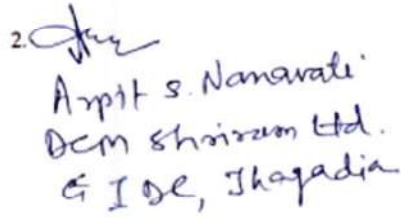 2.
Arpit S. Nanavati
DCM Shriram Ltd.
GIDC, Jhagadia